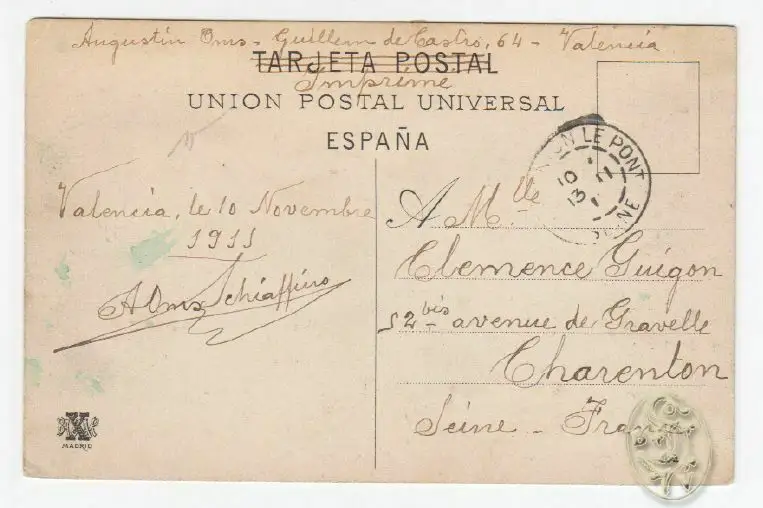 Augustín Oms - Guillem de Castro, 64 - Valencia
TARJETA POSTAL
Imprimé
UNION POSTAL UNIVERSAL
ESPAÑA
ON LE PONT
10
13 11
SEINE
Valencia, le 10 Novembre
1911
A Oms Schiaffino
A Mlle
Clemence Guigon
52 bis avenue de Gravelle
Charenton
Seine - France
MADRID